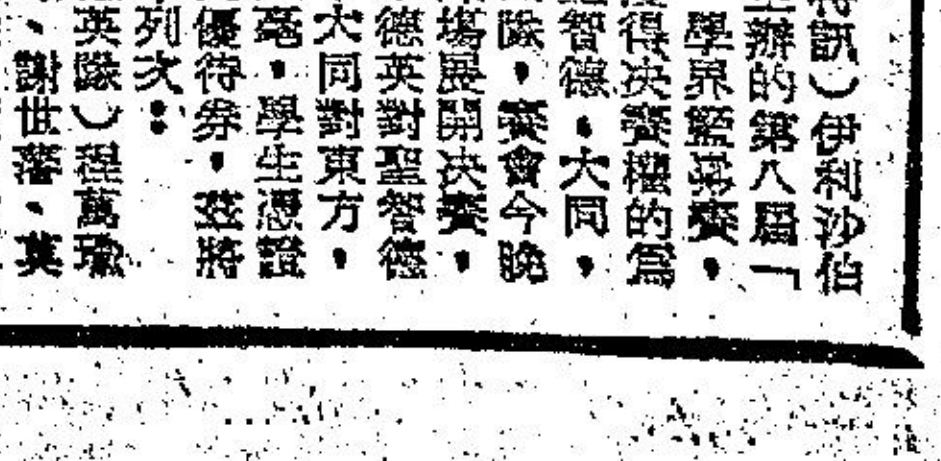 特訊）伊利沙伯
主辦的第八屆「
學界籃球賽，
得決賽權的爲
智德、大同，
隊，賽會今晚
場展開決賽，
德英對聖智德
大同對東方，
毫，學生憑證
優待券，茲將
列次：
英隊）程萬瑜
、謝世藩、莫